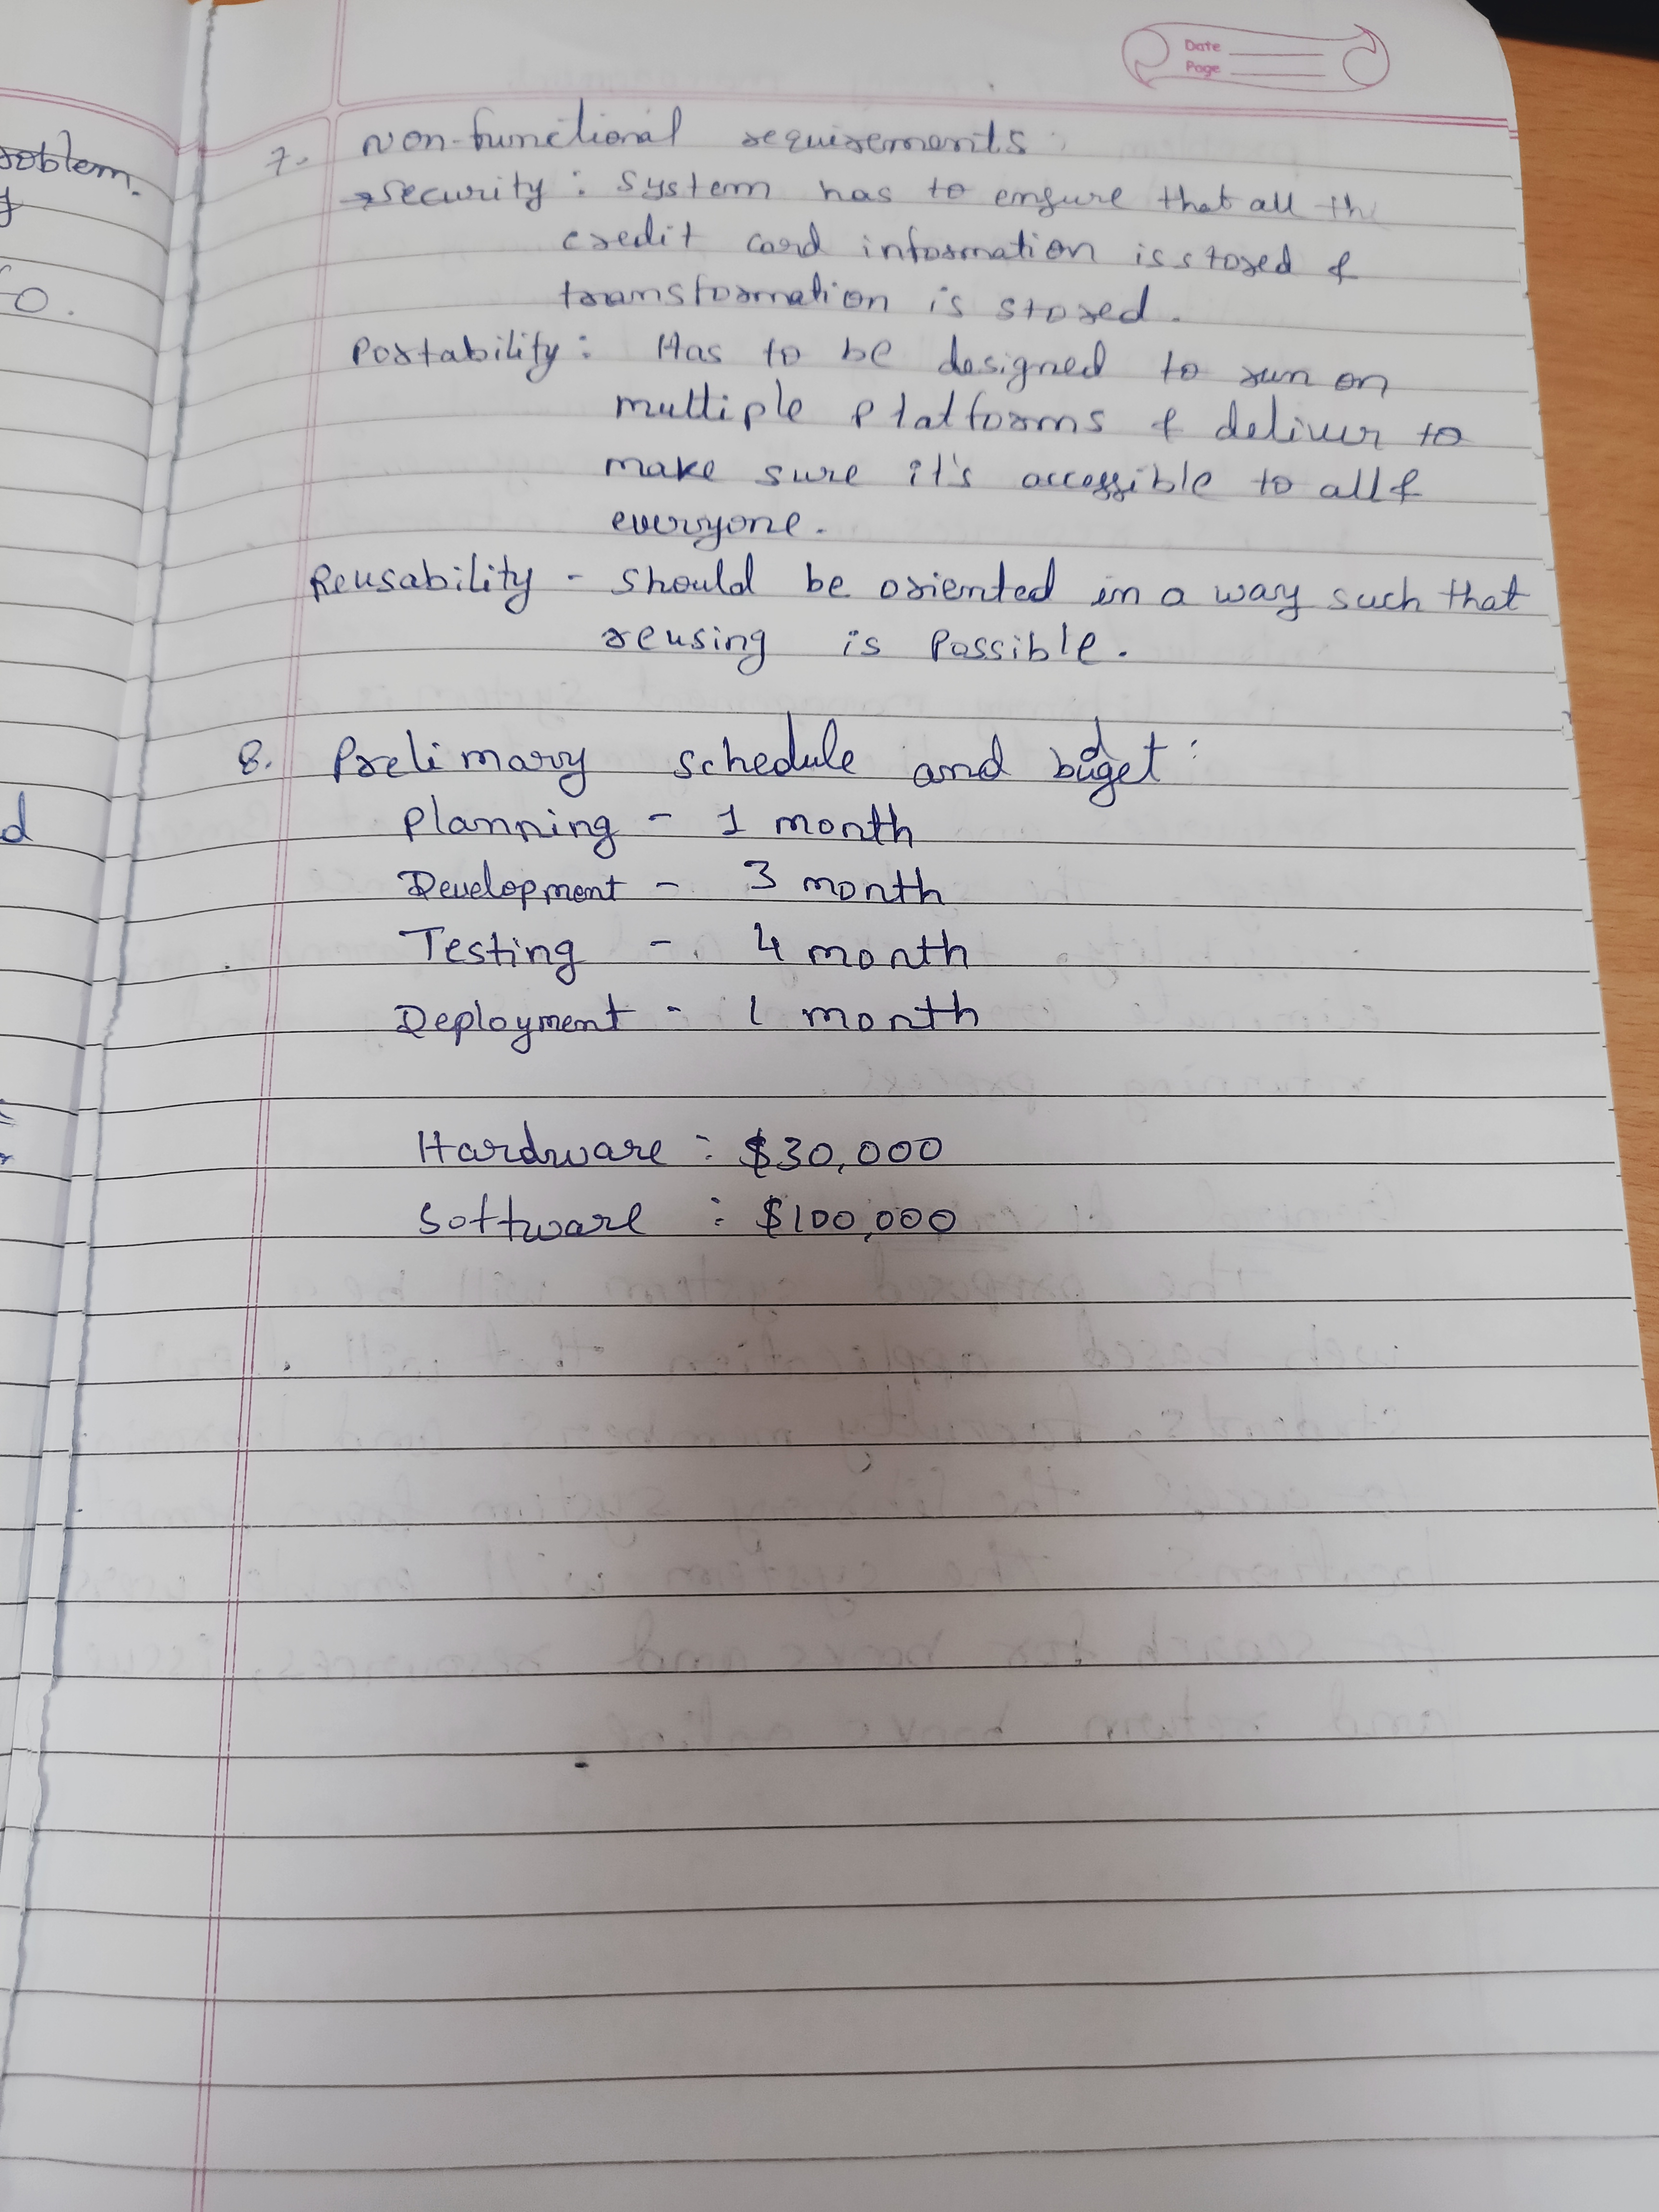 Date
Page
7. Non-functional requirements:
→ Security: System has to ensure that all the
credit card information is stored &
transformation is stored.
Portability: Has to be designed to run on
multiple platforms & deliver to
make sure it's accessible to all &
everyone.
Reusability - Should be oriented in a way such that
reusing is Possible.
8. Prelimary schedule and budget:
Planning - 1 month
Development - 3 month
Testing - 4 month
Deployment - 1 month
Hardware : $30,000
Software : $100,000